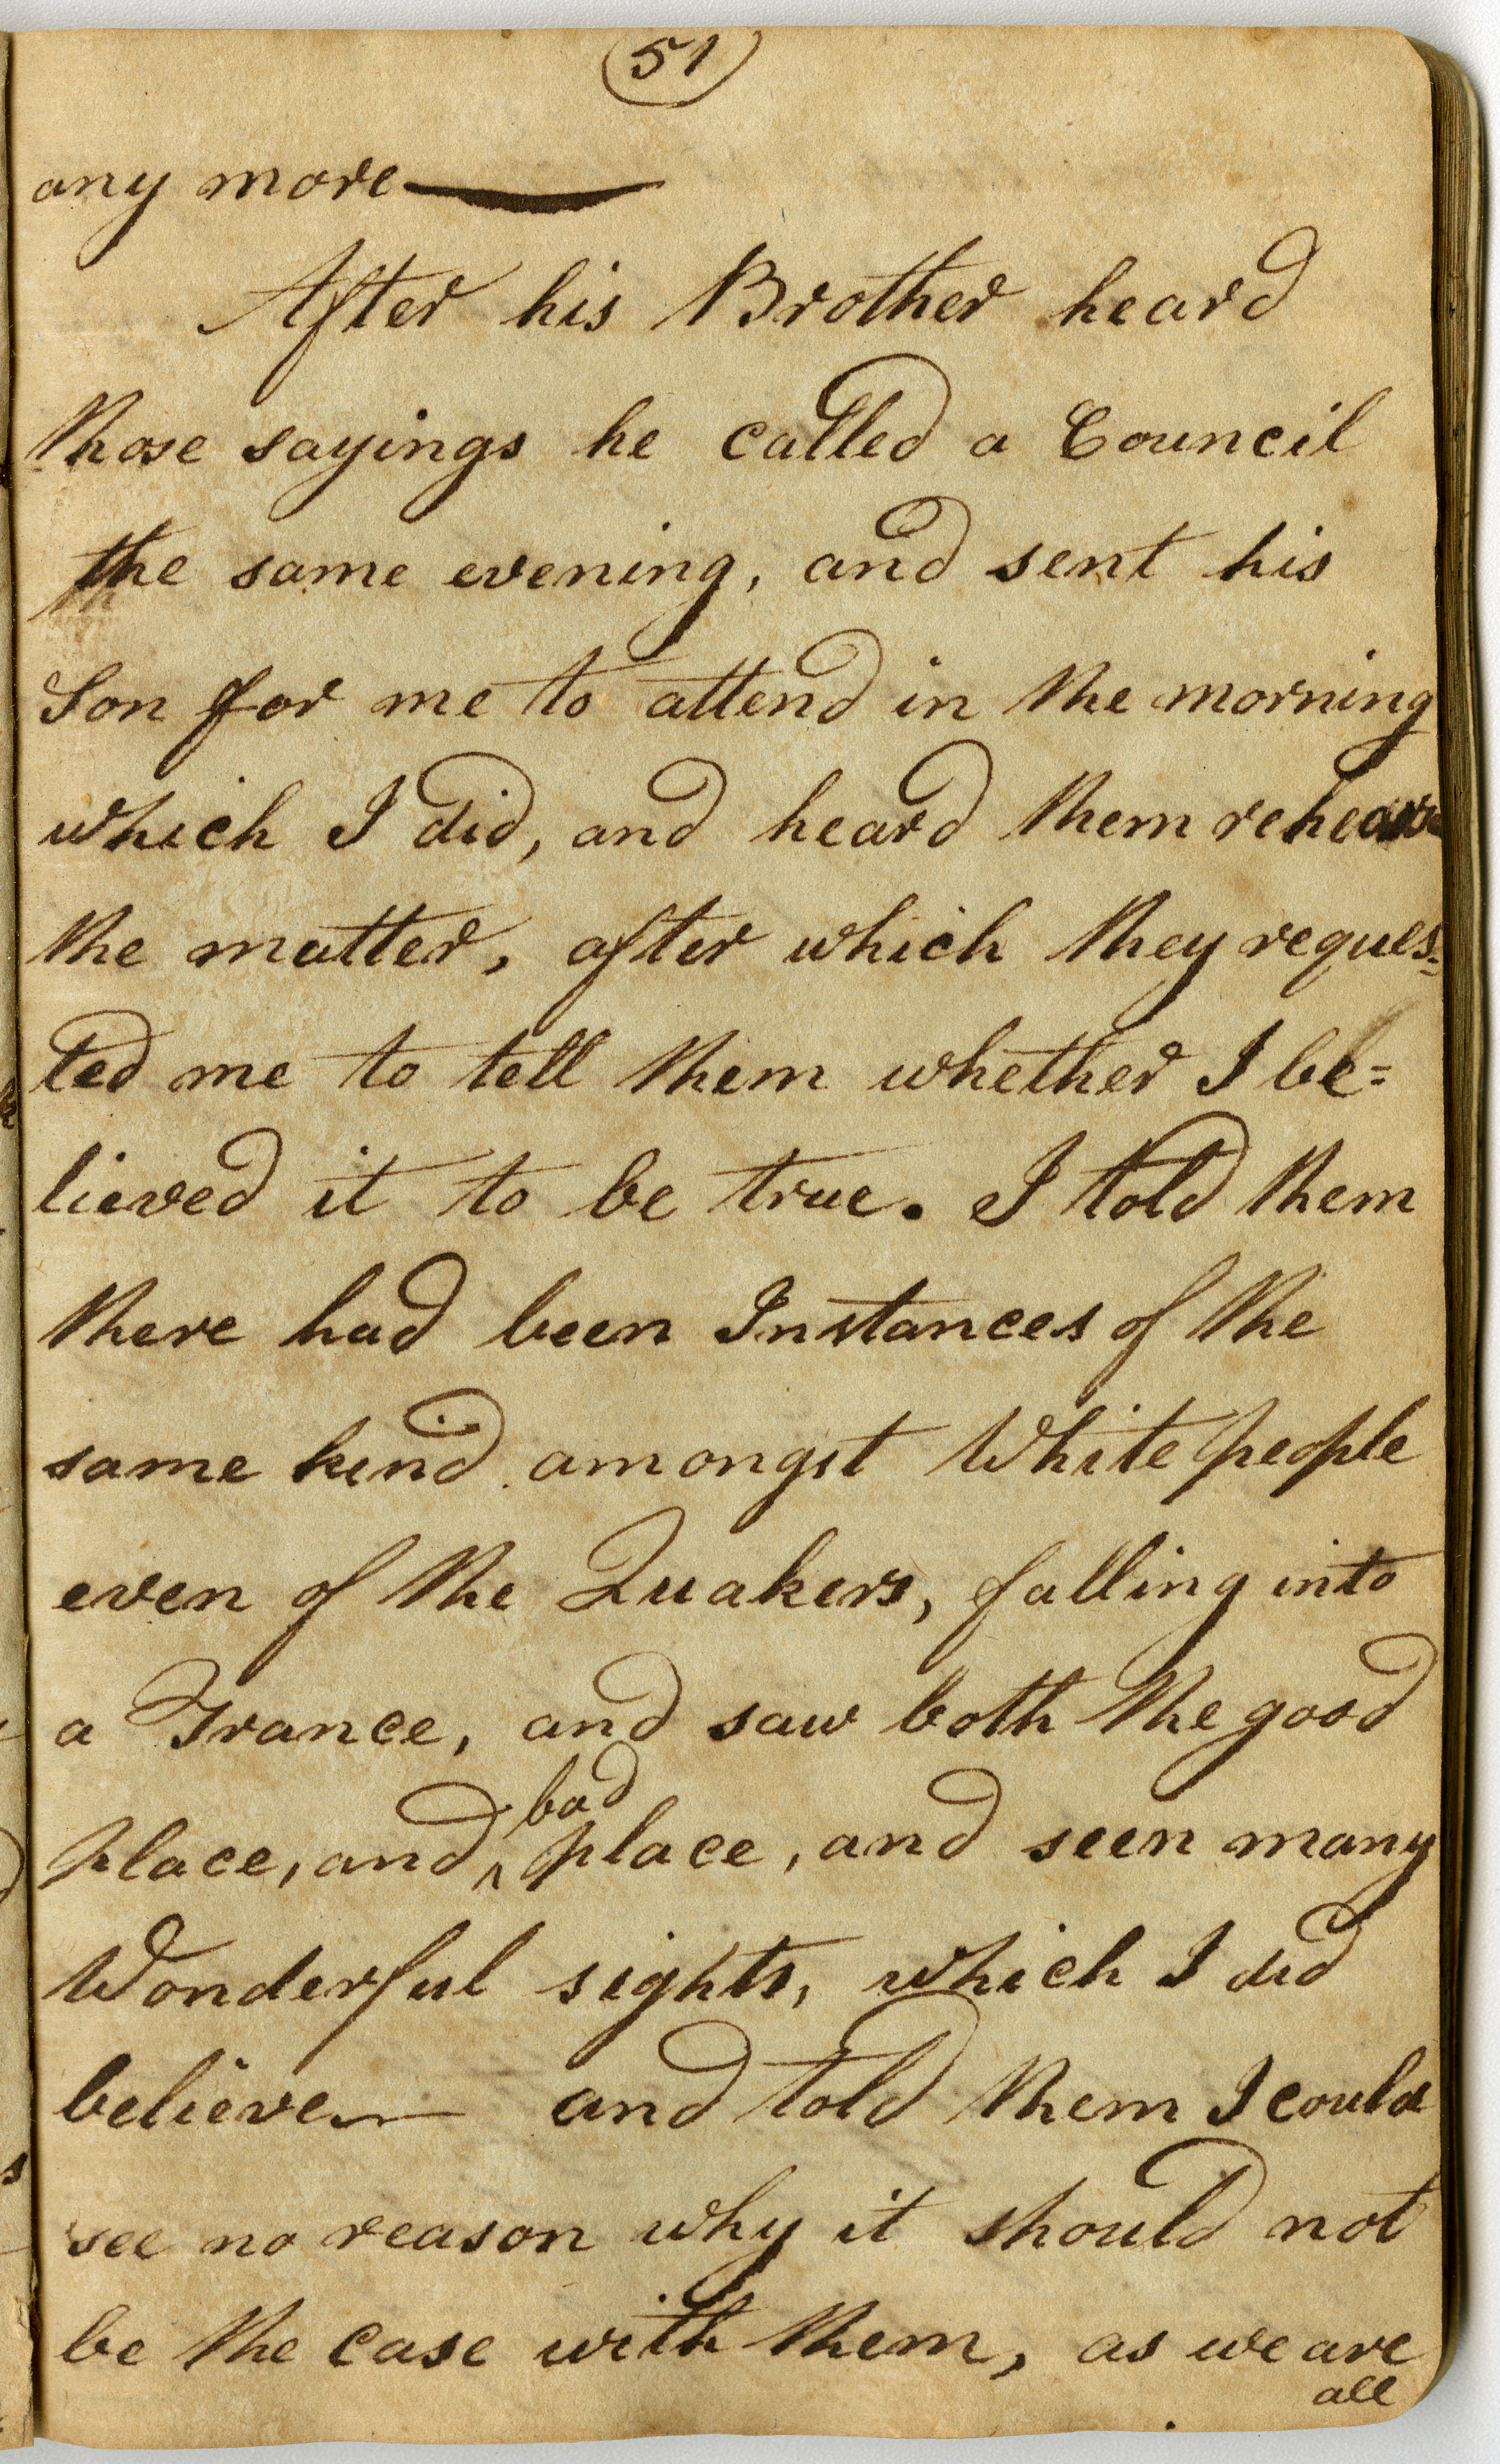 51
any more
After his Brother heard
those sayings he called a Council
the same evening, and sent his
Son for me to attend in the morning
which I did, and heard them rehearse
the matter, after which they reques=
ted me to tell them whether I be=
lieved it to be true. I told them
there had been Instances of the
same kind amongst White people
even of the Quakers, falling into
a Trance, and saw both the good
place, and ^bad place, and seen many
Wonderful sights, which I did
believe— and told them I could
see no reason why it should not
be the case with them, as we are
all